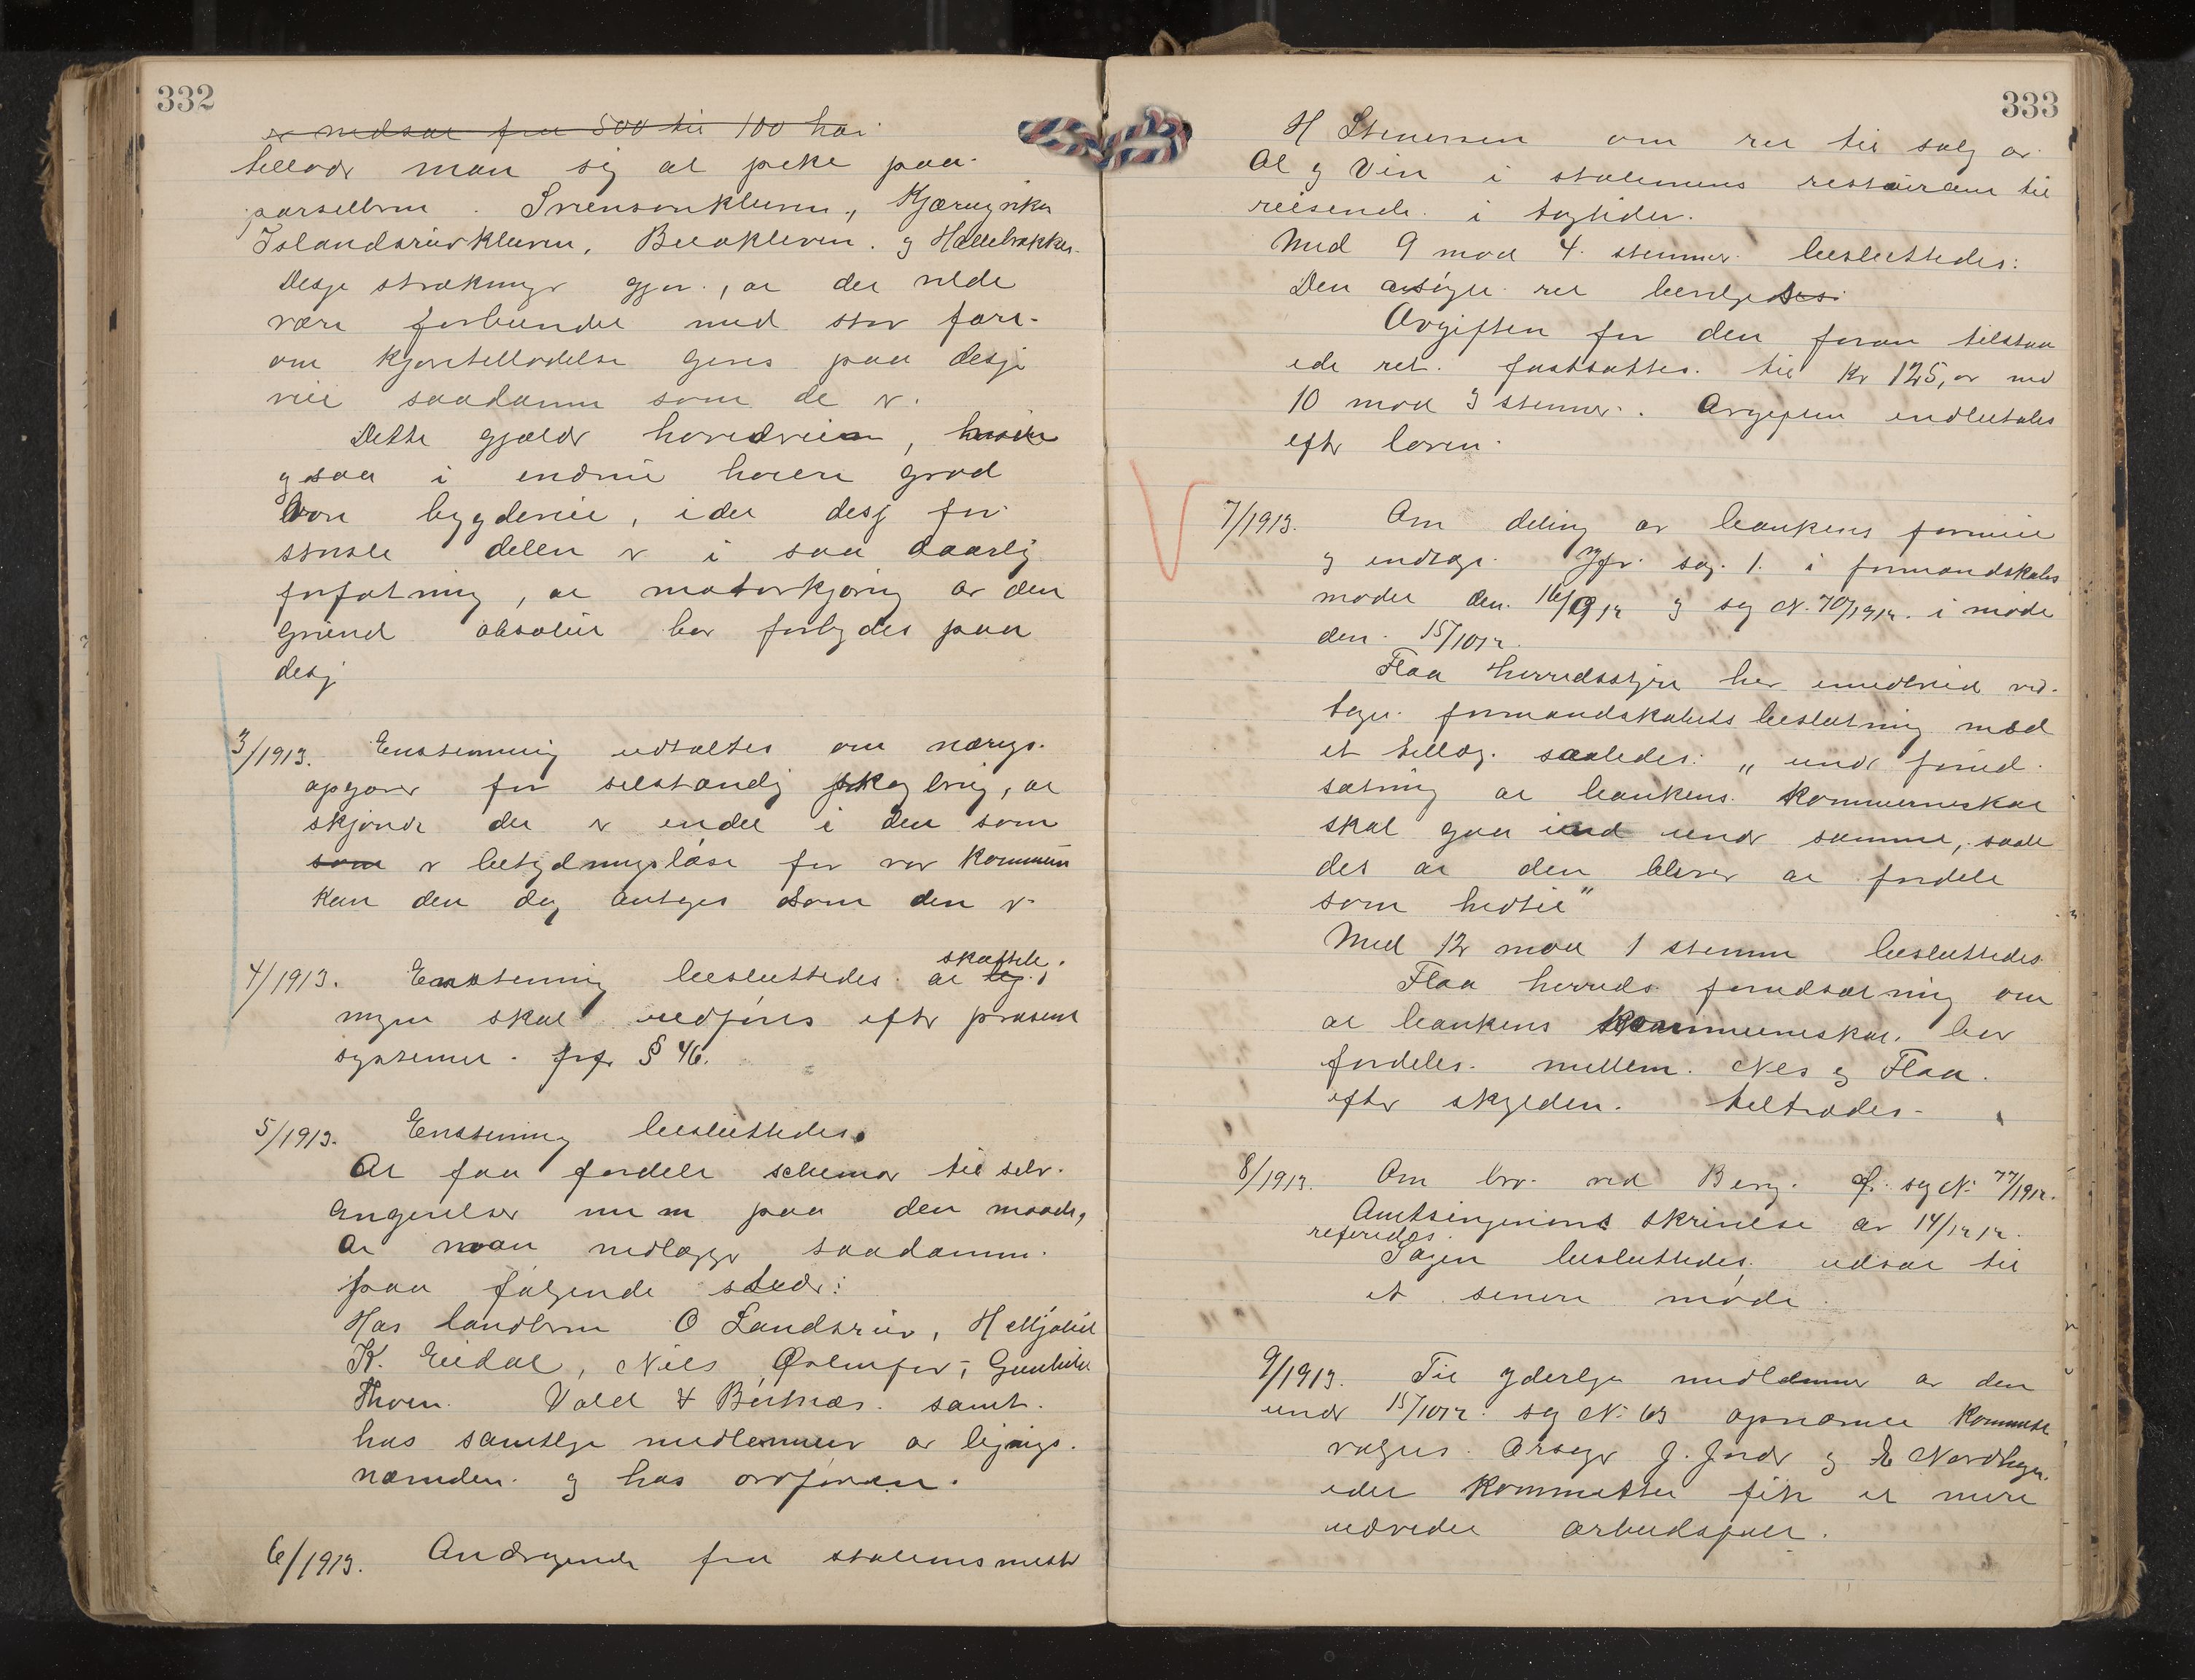 332
er nedsat fra 500 til 100 har
tillader man sig at peke paa
parsellerne Svensonkleven, Kjærnyviken
Islandsrudkleven, Bliokleven og Hallebakken.
Disse strækninger gjør, at det vilde
være forbundet med stor fare
om kjøretilladelse gives paa disse
veie saadanne som de er.
Dette gjælder hovedveien,
ogsaa i endnu høiere grad
vore bygdeveie, idet disse for
største delen er i saa daarlig
forfatning, at motorkjøring av den
grund absolut bør forbydes paa
disse
3/1913. Enstemmig udtaltes om nærings-
opgaver for selstændig skogbrug, at
skjønt der er endel i den som
som er betydningsløse for vor kommune
kan den dog antages som den er.
4/1913. Enstemmig besluttedes at lig. skattelig-
ningen skal utføres efter prosent
systemet. jvfr § 46.
5/1913. Enstemmig besluttedes.
At faa fordelt schemaer til selv-
angivelser m m paa den maade,
at man nedlægger saadanne
paa følgende steder:
Hos landhrm O Landsrud, H Mjølid
K. Eidal, Nils, Gunhild
Thoen. Vold & Bertnæs. samt
hos samtlige medlemmer av ligings-
nævnden og hos ordføreren.
6/1913. Andragende fra stationsmester
333
H Stenersen om ret til salg av
Øl og Vin i stationens restauration til
reisende i togtiden.
Med 9 mod 4 stemmer besluttedes:
Den ansøgte ret bevilgedes.
Avgiften for den foran tilstaa
ede ret. fastsattes til Kr 125, or med
10 mod 3 stemmer. Avgiften indbetales
efter loven.
7/1913. Om deling av bankens formue
og indtægt. Jfr. sag. 1. i formandskabs
møder den 16/9 12 og sag N. 70/1912. i møde
den 15/10 12.
Flaa herredsstyre har imidlertid ved-
taget formandskabets beslutning med
et tillæg saaledes: „under forud-
sætning at bankens kommuneskat
skal gaa ind under samme, saale
des at den bliver at fordele
som hidtil"
Med 12 mod 1 stemme besluttedes
Flaa herreds forudsætning om
at bankens kommuneskat bør
fordeles mellem Nes og Flaa
efter skylden. tiltrædes.
8/1913. Om bro ved Berg. jf. sag N. 77/1912.
Amtsingeniørens skrivelse av 14/12 12
referedes.
Sagen besluttedes udsat til
et senere møde.
9/1913. Til yderlige medlemmer av den
under 15/10 12. sag N. 63 opnævnte Komite
valgtes. J. Jordr og E Nordhagen.
idet Kommitteen fik et mere
udvidet arbeidsfelt.